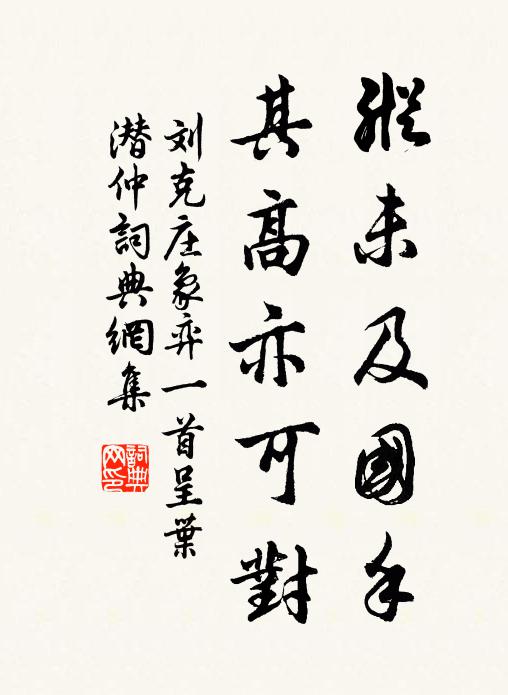 縱未及國手
其高亦可對
刘克庄象弈一首呈葉
潜仲詞典網集
詞典网印